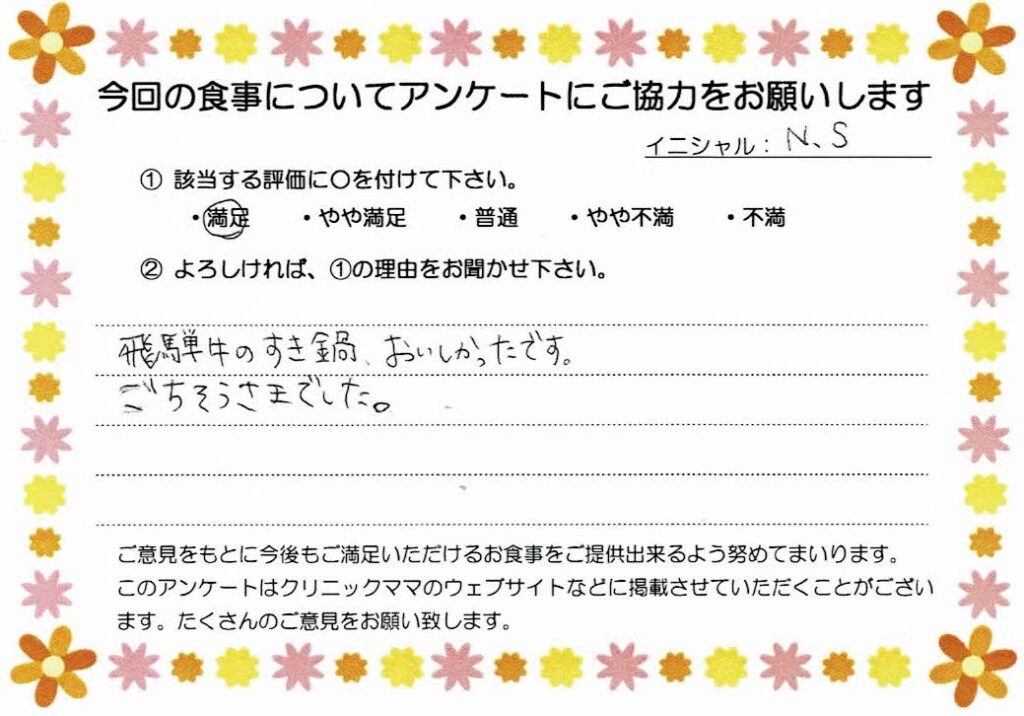 今回の食事についてアンケートにご協力をお願いします
イニシャル： N、S
① 該当する評価に〇を付けて下さい。
・満足 ・やや満足 ・普通 ・やや不満 ・不満
② よろしければ、①の理由をお聞かせ下さい。
飛騨牛のすき鍋、おいしかったです。
ごちそうさまでした。
ご意見をもとに今後もご満足いただけるお食事をご提供出来るよう努めてまいります。
このアンケートはクリニックママのウェブサイトなどに掲載させていただくことがござい
ます。たくさんのご意見をお願い致します。